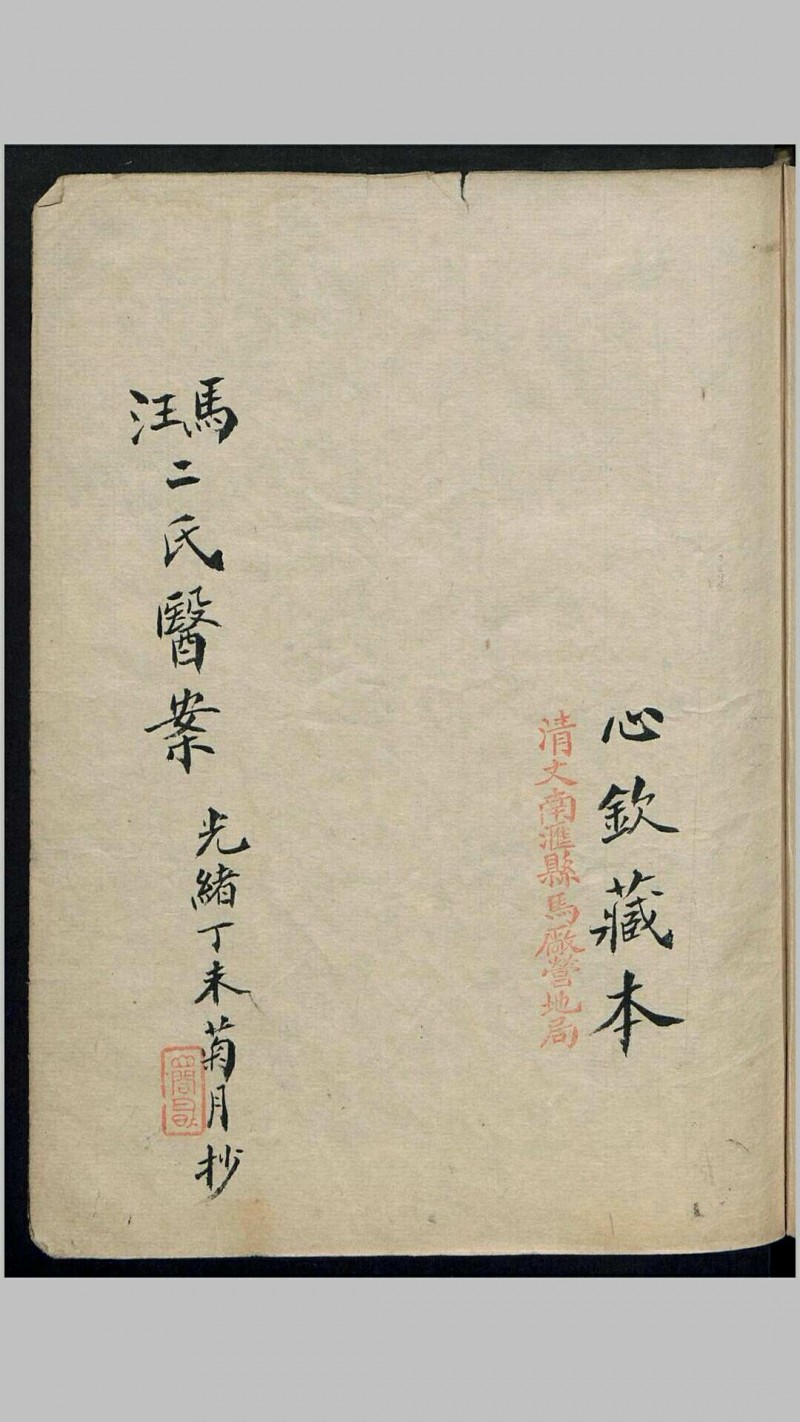 心欽藏本
清丈南滙縣馬廠營地局
馬汪二氏醫案
光緒丁未菊月抄